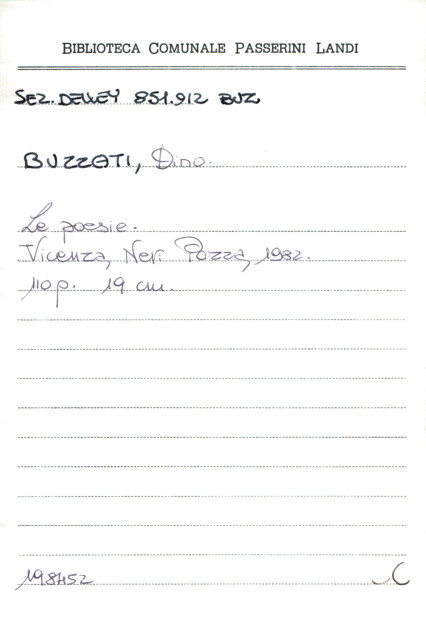 BIBLIOTECA COMUNALE PASSERINI LANDI
SEZ. DEWEY 851.912 BUZ
BUZZATI, Dino.
Le poesie.
Vicenza, Neri Pozza, 1982.
110 p. 19 cm.
198452